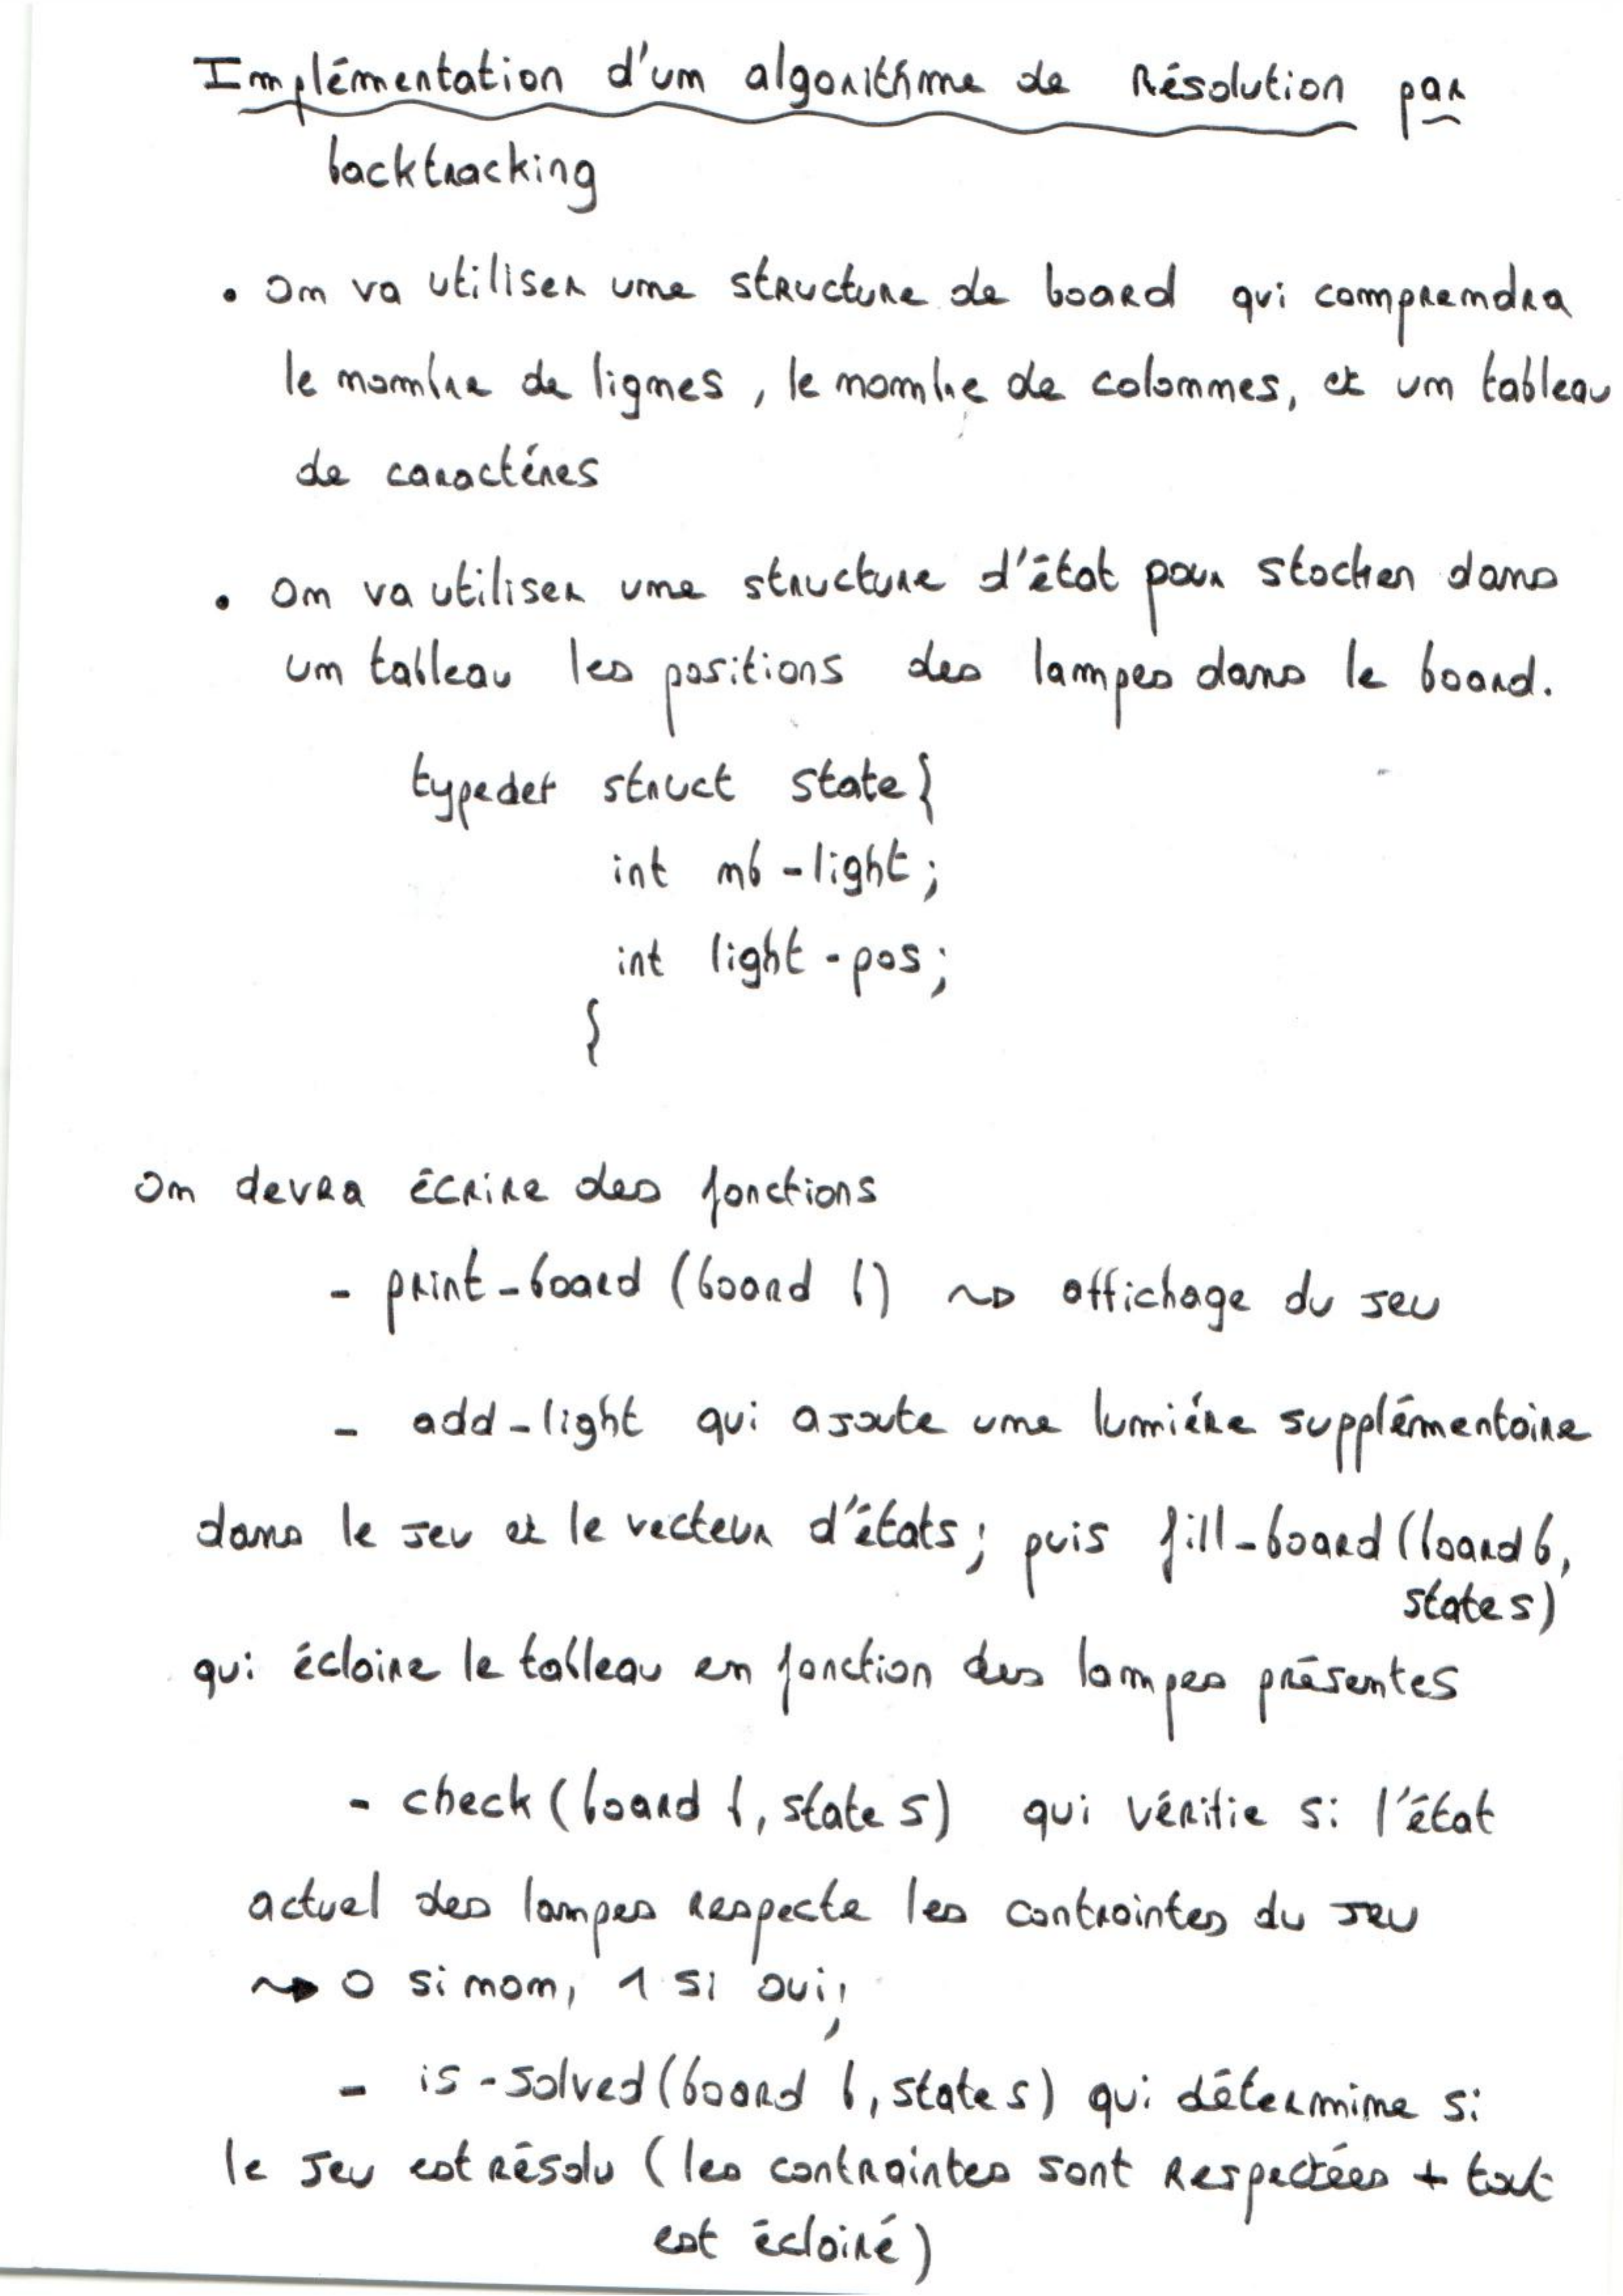 Implémentation d'un algorithme de Résolution par
backtracking
• On va utiliser une structure de board qui comprendra
le nombre de lignes, le nombre de colonnes, et un tableau
de caractères
• On va utiliser une structure d'état pour stocker dans
un tableau les positions des lampes dans le board.
typedef struct state {
int nb-light;
int light-pos;
{
On devra écrire des fonctions
- print-board (board b) ~> affichage du jeu
- add-light qui ajoute une lumière supplémentaire
dans le jeu et le vecteur d'états; puis fill-board (board b,
state s)
qui éclaire le tableau en fonction des lampes présentes
- check (board b, state s) qui vérifie si l'état
actuel des lampes respecte les contraintes du jeu
~> 0 si non, 1 si oui;
- is-solved (board b, state s) qui détermine si
le jeu est résolu (les contraintes sont respectées + tout
est éclairé)